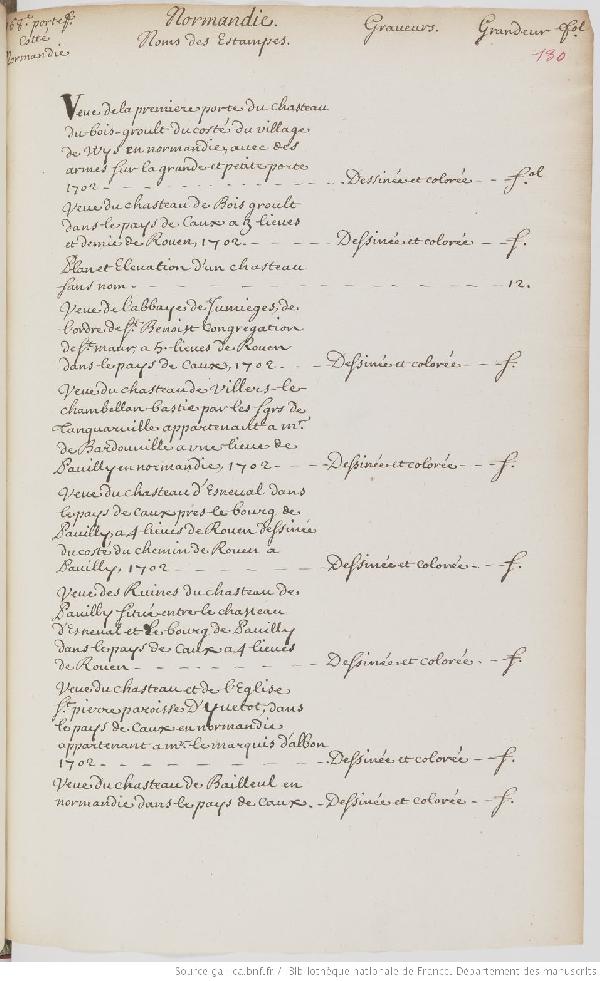 68.e portef. Normandie. Graveurs. Grandeur fol
Cotté Noms des Estampes. 130
Normandie
Veue de la premiere porte du chasteau
du bois-groult du costé du village
de Wys en normandie, avec des
armes sur la grande et petite porte
1702 - - - Dessinée et colorée - - fol
Veue du chasteau de Bois groult
dans le pays de Caux a 3 lieues
et demie de Rouen, 1702. - - - Dessinée et colorée - - f.
Plan et Elevation d'un chasteau
sans nom - - - 12.
Veue de l'abbaye de Jumieges, de
l'ordre de St. Benoist Congregation
de St. maur, a 5 lieues de Rouen
dans le pays de Caux, 1702 - - - Dessinée et colorée - - f.
Veue du chasteau de Villers-le
chambellan bastie par les sgrs de
Tanquarville appartenant a mr.
de Bardouville a une lieue de
Pavilly en normandie, 1702 - - - Dessinée et colorée - - f.
Veue du chasteau d'Esneval dans
le pays de Caux prés le bourg de
Pavilly, a 4 lieues de Rouen Dessinée
du costé du chemin de Rouen a
Pavilly, 1702 - - - Dessinée et colorée - - f.
Veue des Ruines du chasteau de
Pavilly situé entre le chasteau
d'Esneval et le bourg de Pavilly
dans le pays de Caux a 4 lieues
de Rouen - - - Dessinée et colorée. - - f.
Veue du chasteau et de l'Eglise
St. pierre paroisse D'Yvetot, dans
le pays de Caux en normandie
appartenant a mr. le marquis d'albon
1702 - - - Dessinée et colorée - - f.
Veue du chasteau de Bailleul en
normandie dans le pays de Caux. - Dessinée et colorée - - f.
Source gallica.bnf.fr / Bibliothèque nationale de France. Département des manuscrits.